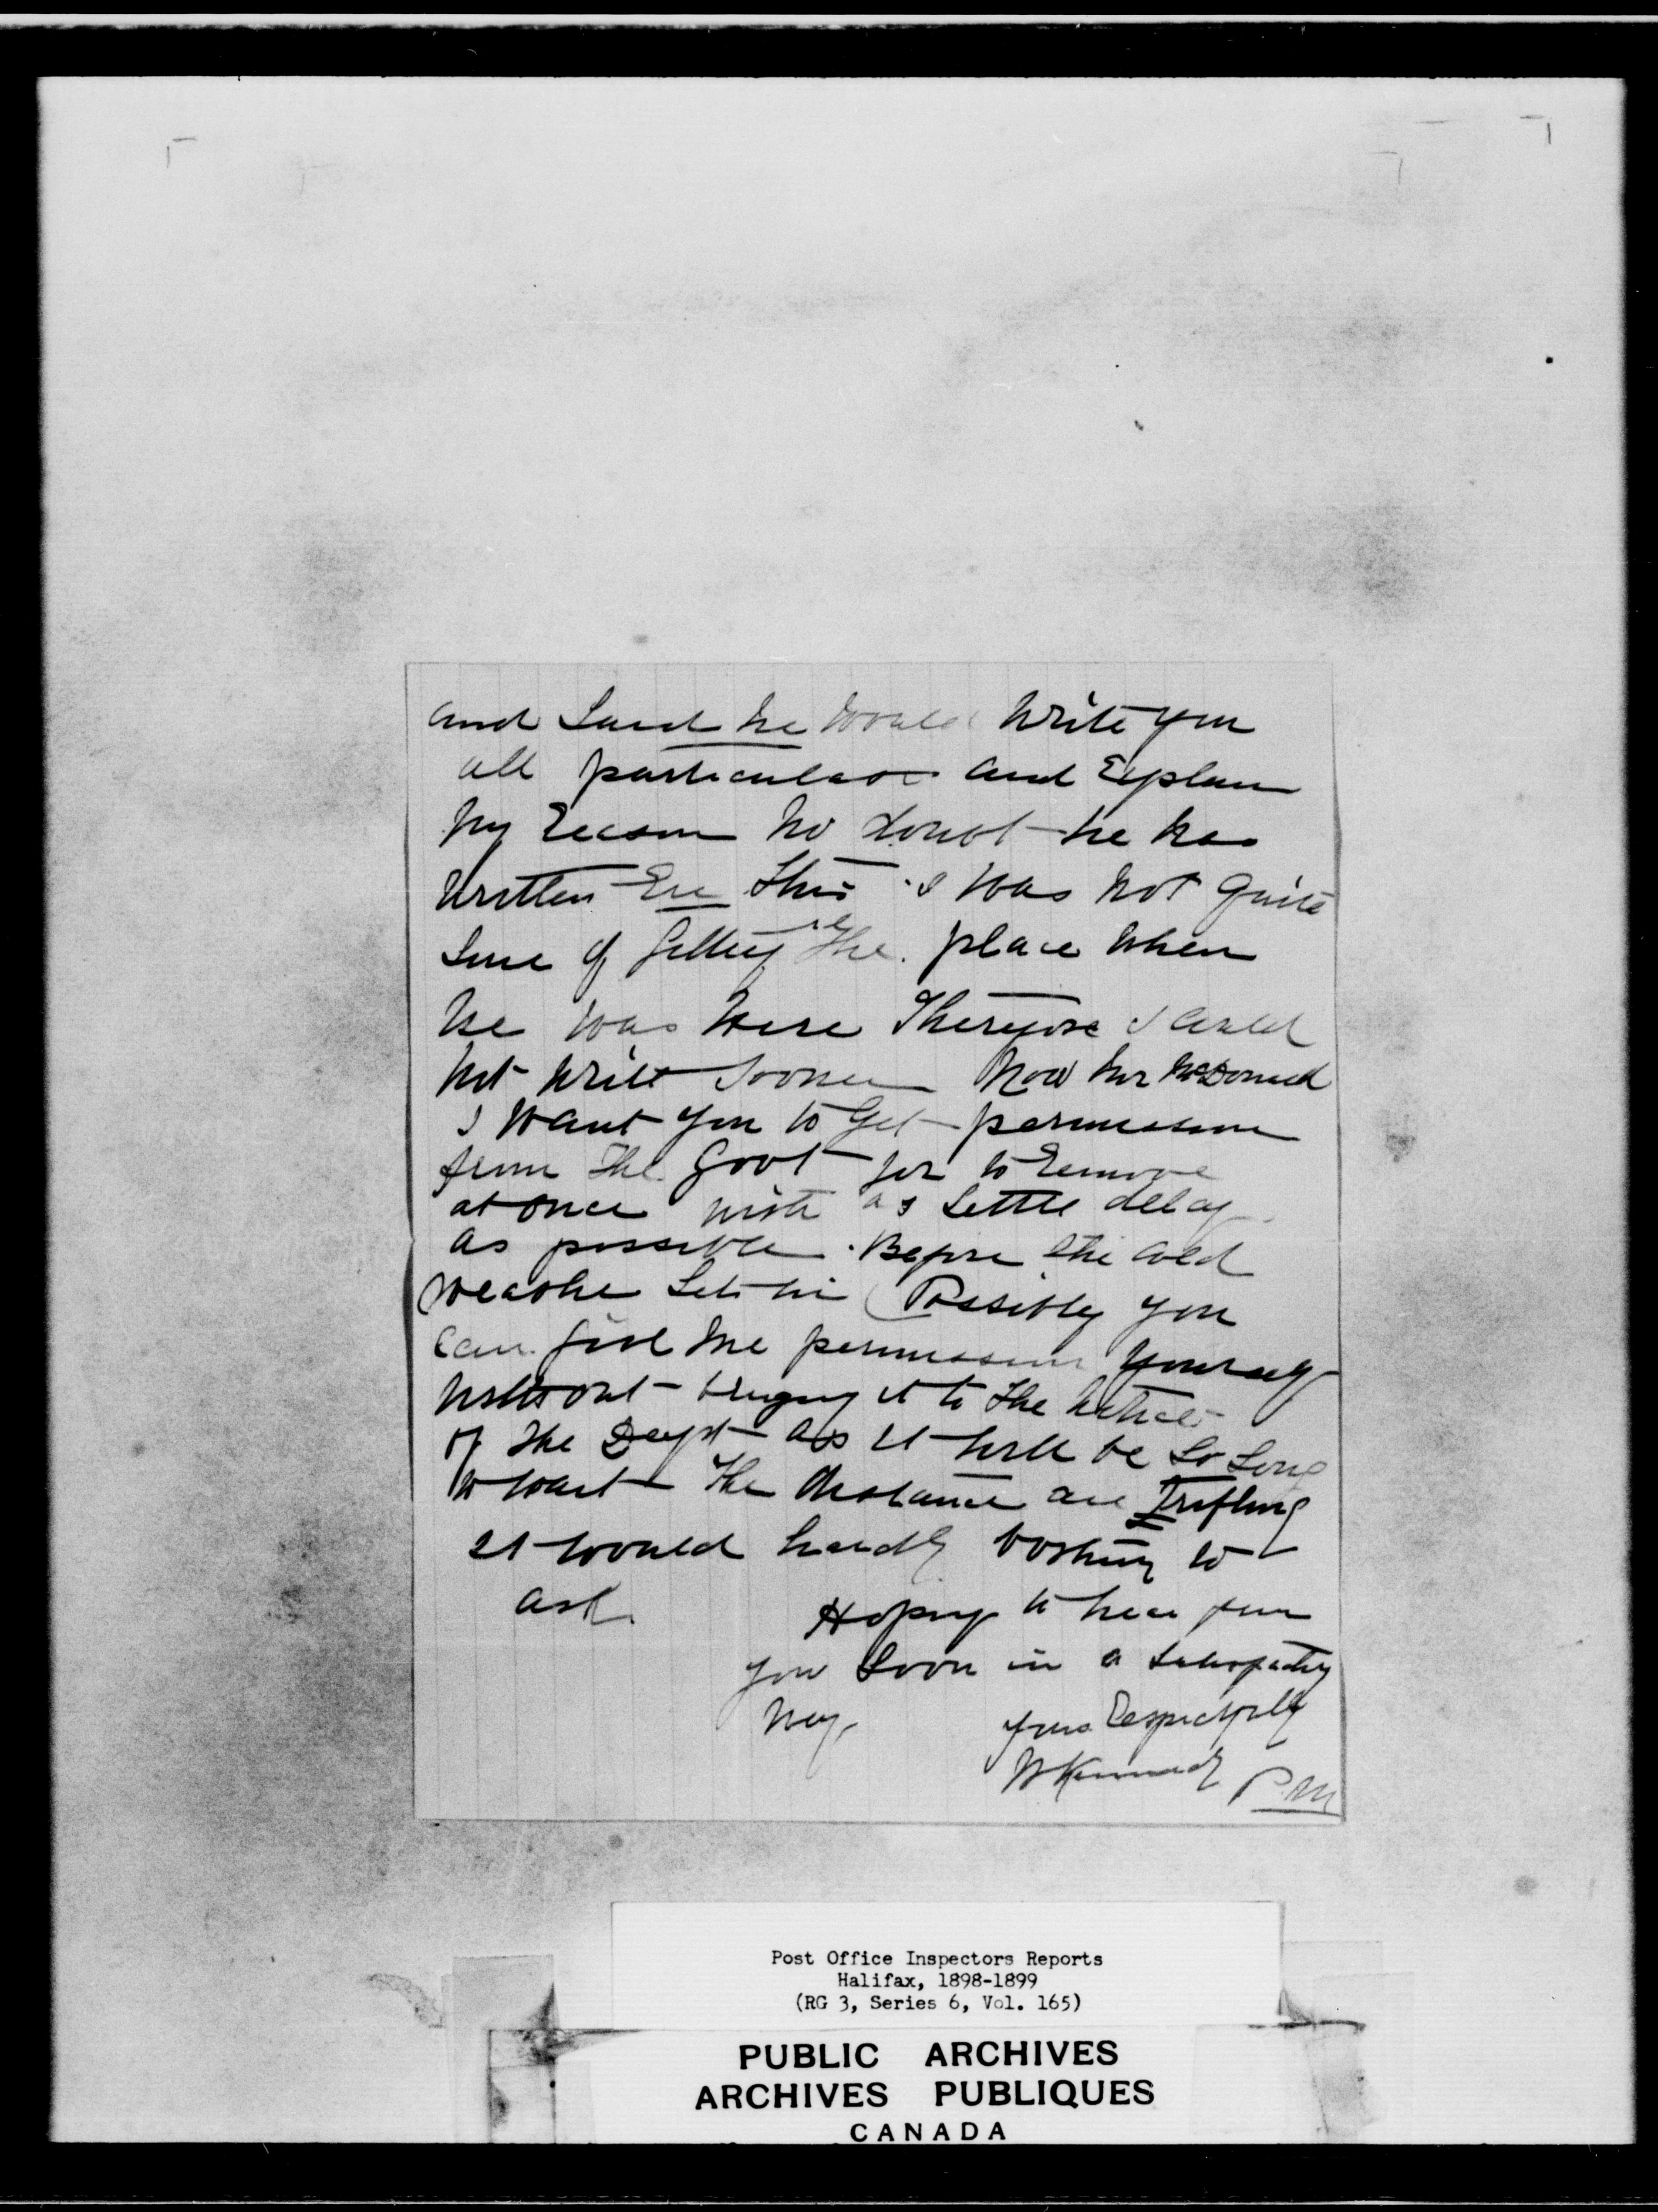 and Said he would write you
all particulars and Explain
my Reason no doubt he has
written Ere this I was not quite
sure of getting the place when
he was here Therefore I could
not write sooner Now Mr McDonald
I want you to get permission
from the Govt for to Remove
at once with as Little delay
as possible. Before the cold
weather sets in Possibly you
can give me permission yourself
without bringing it to the notice
of the Dept as it will be so Long
to wait The distance are Trifling
It would hardly to
ask. Hoping to hear from
you Soon in a satisfactory
way. yours Respectfully
W Kennedy P.M
Post Office Inspectors Reports
Halifax, 1898-1899
(RG 3, Series 6, Vol. 165)
PUBLIC ARCHIVES
ARCHIVES PUBLIQUES
CANADA